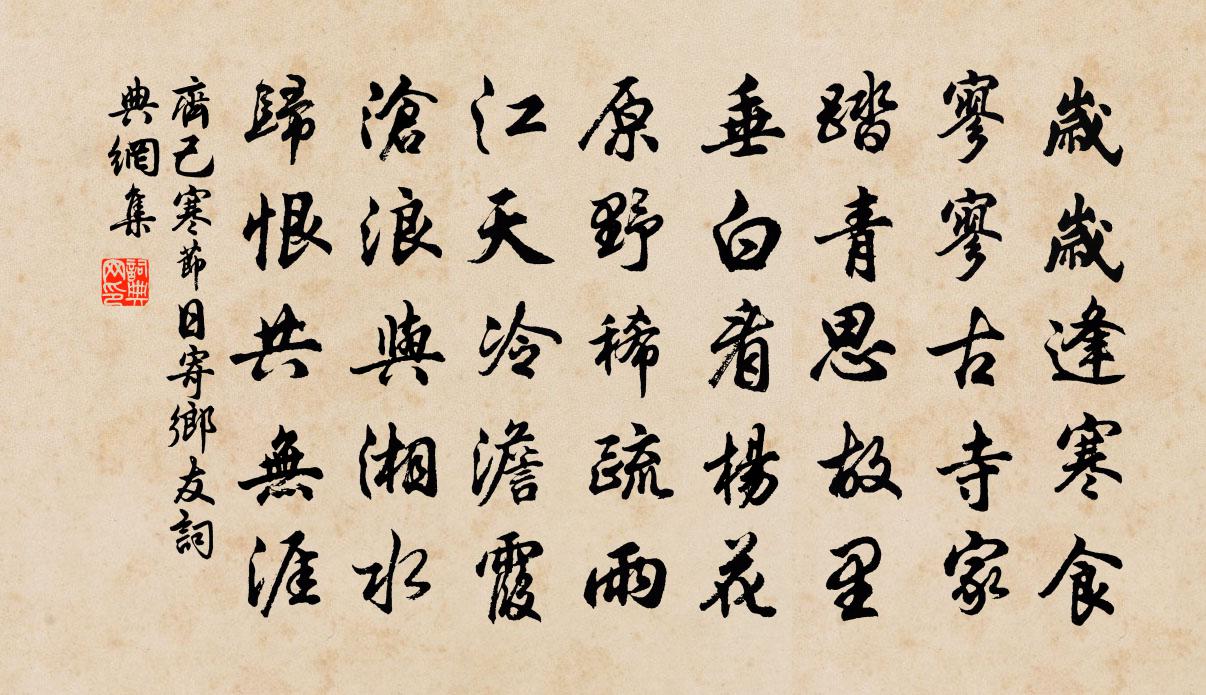 歲歲逢寒食
寥寥古寺家
踏青思故里
垂白看楊花
原野稀疏雨
江天冷澹霞
滄浪與湘水
歸恨共無涯
齊己寒節日寄鄉友詞
典網集
詞典
网印